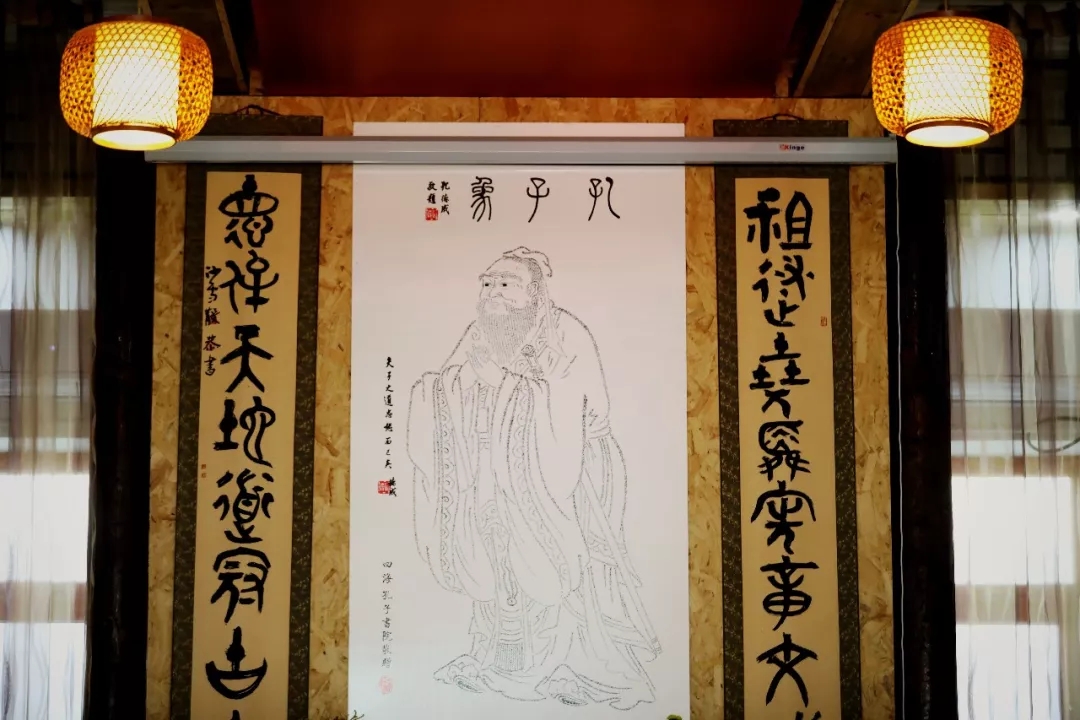 祖述堯舜憲章文
孔子象
孔德成
敬題
夫子之道忠恕而已矣
德成
四海孔子書院敬贈
悳侔天地道冠古
恭書